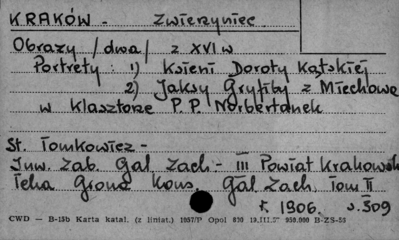 KRAKÓW - Zwierzyniec.
Obrazy /dwa/ z XVI w
Portrety: 1) Ksieni Doroty Kątskiej
2) Jaksy Gryfity z Miechowa
w Klasztorze P.P. Norbertanek
St. Tomkowicz -
Inw. Zab. Gal Zach. - III Powiat Krakowsk
Teka Grona Kons. Gal Zach. Tom II
K 1906. s. 309
CWD — B-15b Karta katal. (z liniat.) 1957/P Opol 830 950.000 B-ZS-53